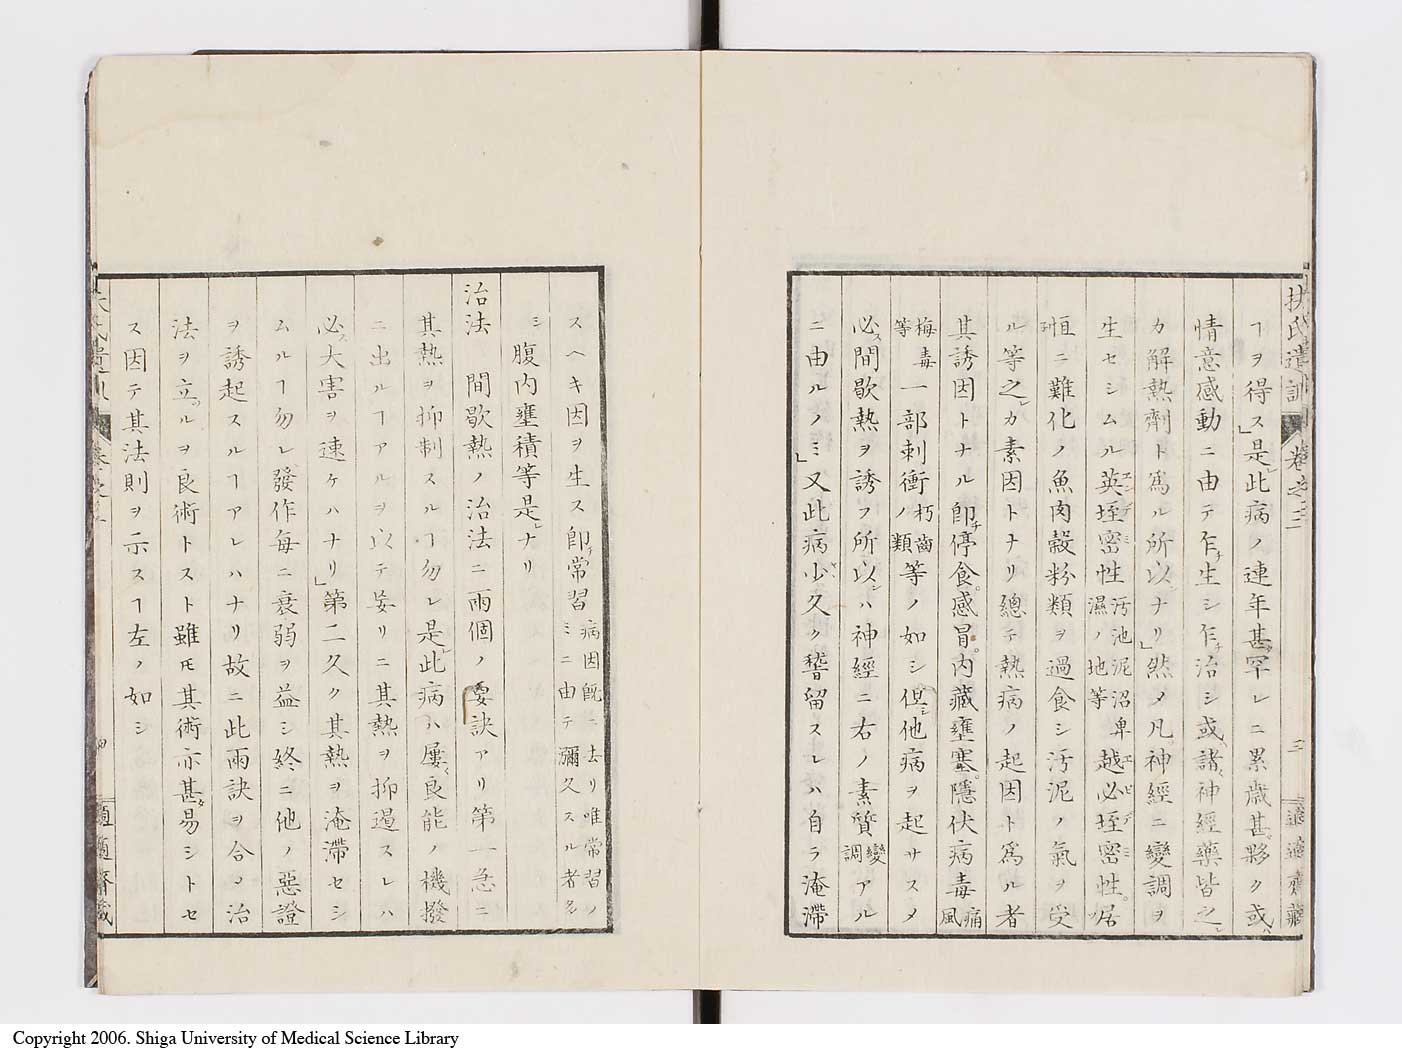 扶氏遺訓 卷之二 三 適適齋藏
ヿヲ得ス」是レ此病ノ連年甚タ罕レニ累歳甚タ夥ク或ハ
情意感動ニ由テ乍チ生シ乍チ治シ或ハ諸神經藥皆之レ
カ解熱劑ト爲ル所以ナリ」然メ凡ソ神經ニ變調ヲ
生セシムル英垤密性エンデミ汚池泥沼卑濕ノ地等越必垤密性エピデミ居
恒ニ難化ノ魚肉穀粉類ヲ過食シ汚泥ノ氣ヲ受
ル等之レカ素因トナリ總テ熱病ノ起因ト爲ル者
其誘因トナル即チ停食。感冒。內藏壅塞。隱伏病毒痛風
梅毒等一部刺衝ノ朽齒類等ノ如シ但シ他病ヲ起サスメ
必ス間歇熱ヲ誘フ所以ハ神經ニ右ノ素質變調アル
ニ由ルノミ」又此病少ク久ク稽留スレハ自ラ淹滯
スヘキ因ヲ生ス即チ常習病因既ニ去リ唯常習ノミニ由テ彌久スル者多シ
腹內壅積等是レナリ
治法 間歇熱ノ治法ニ兩個ノ要訣アリ第一急ニ
其熱ヲ抑制スルヿ勿レ是レ此病ハ屢良能ノ機撥
ニ出ルヿアルヲ以テ妄リニ其熱ヲ抑遏スレハ
必ス大害ヲ速ケハナリ」第二久ク其熱ヲ淹滯セシ
ムルヿ勿レ發作每ニ衰弱ヲ益シ終ニ他ノ惡證
ヲ誘起スルヿアレハナリ故ニ此兩訣ヲ合メ治
法ヲ立ツルヲ良術トスト雖モ其術亦甚タ易シトセ
ス因テ其法則ヲ示スヿ左ノ如シ
四 適適齋藏
Copyright 2006. Shiga University of Medical Science Library